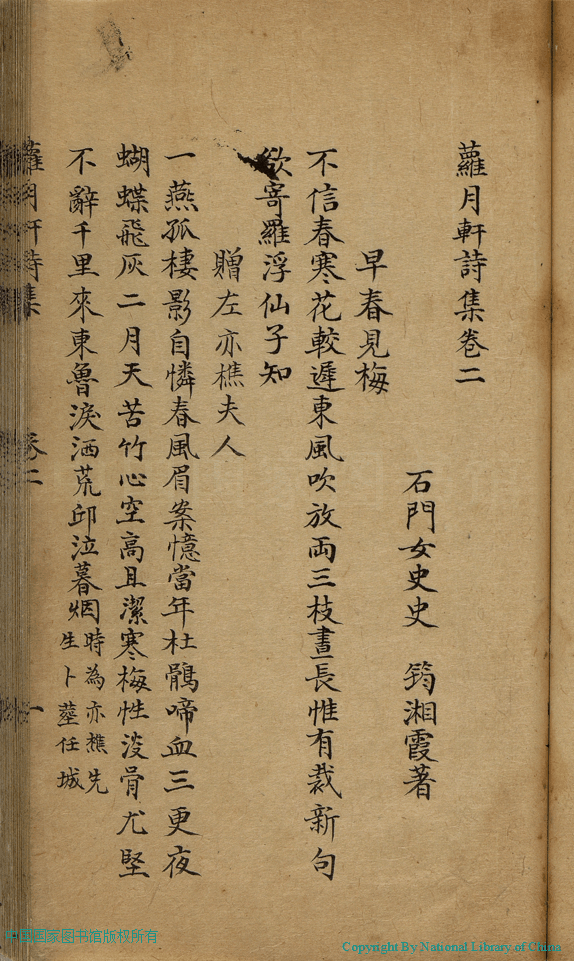 蘿月軒詩集卷二
石門女史史　筠湘霞著
早春見梅
不信春寒花較遲東風吹放両三枝晝長惟有裁新句
欲寄羅浮仙子知
贈左亦樵夫人
一燕孤棲影自憐春風眉案憶當年杜鵑啼血三更夜
蝴蝶飛灰二月天苦竹心空高且潔寒梅性淡骨尤堅
不辭千里來東魯淚洒荒邱泣暮烟時為亦樵先
生卜塟任城
蘿月軒詩集　卷二　一
中国国家图书馆版权所有
Copyright By National Library of China